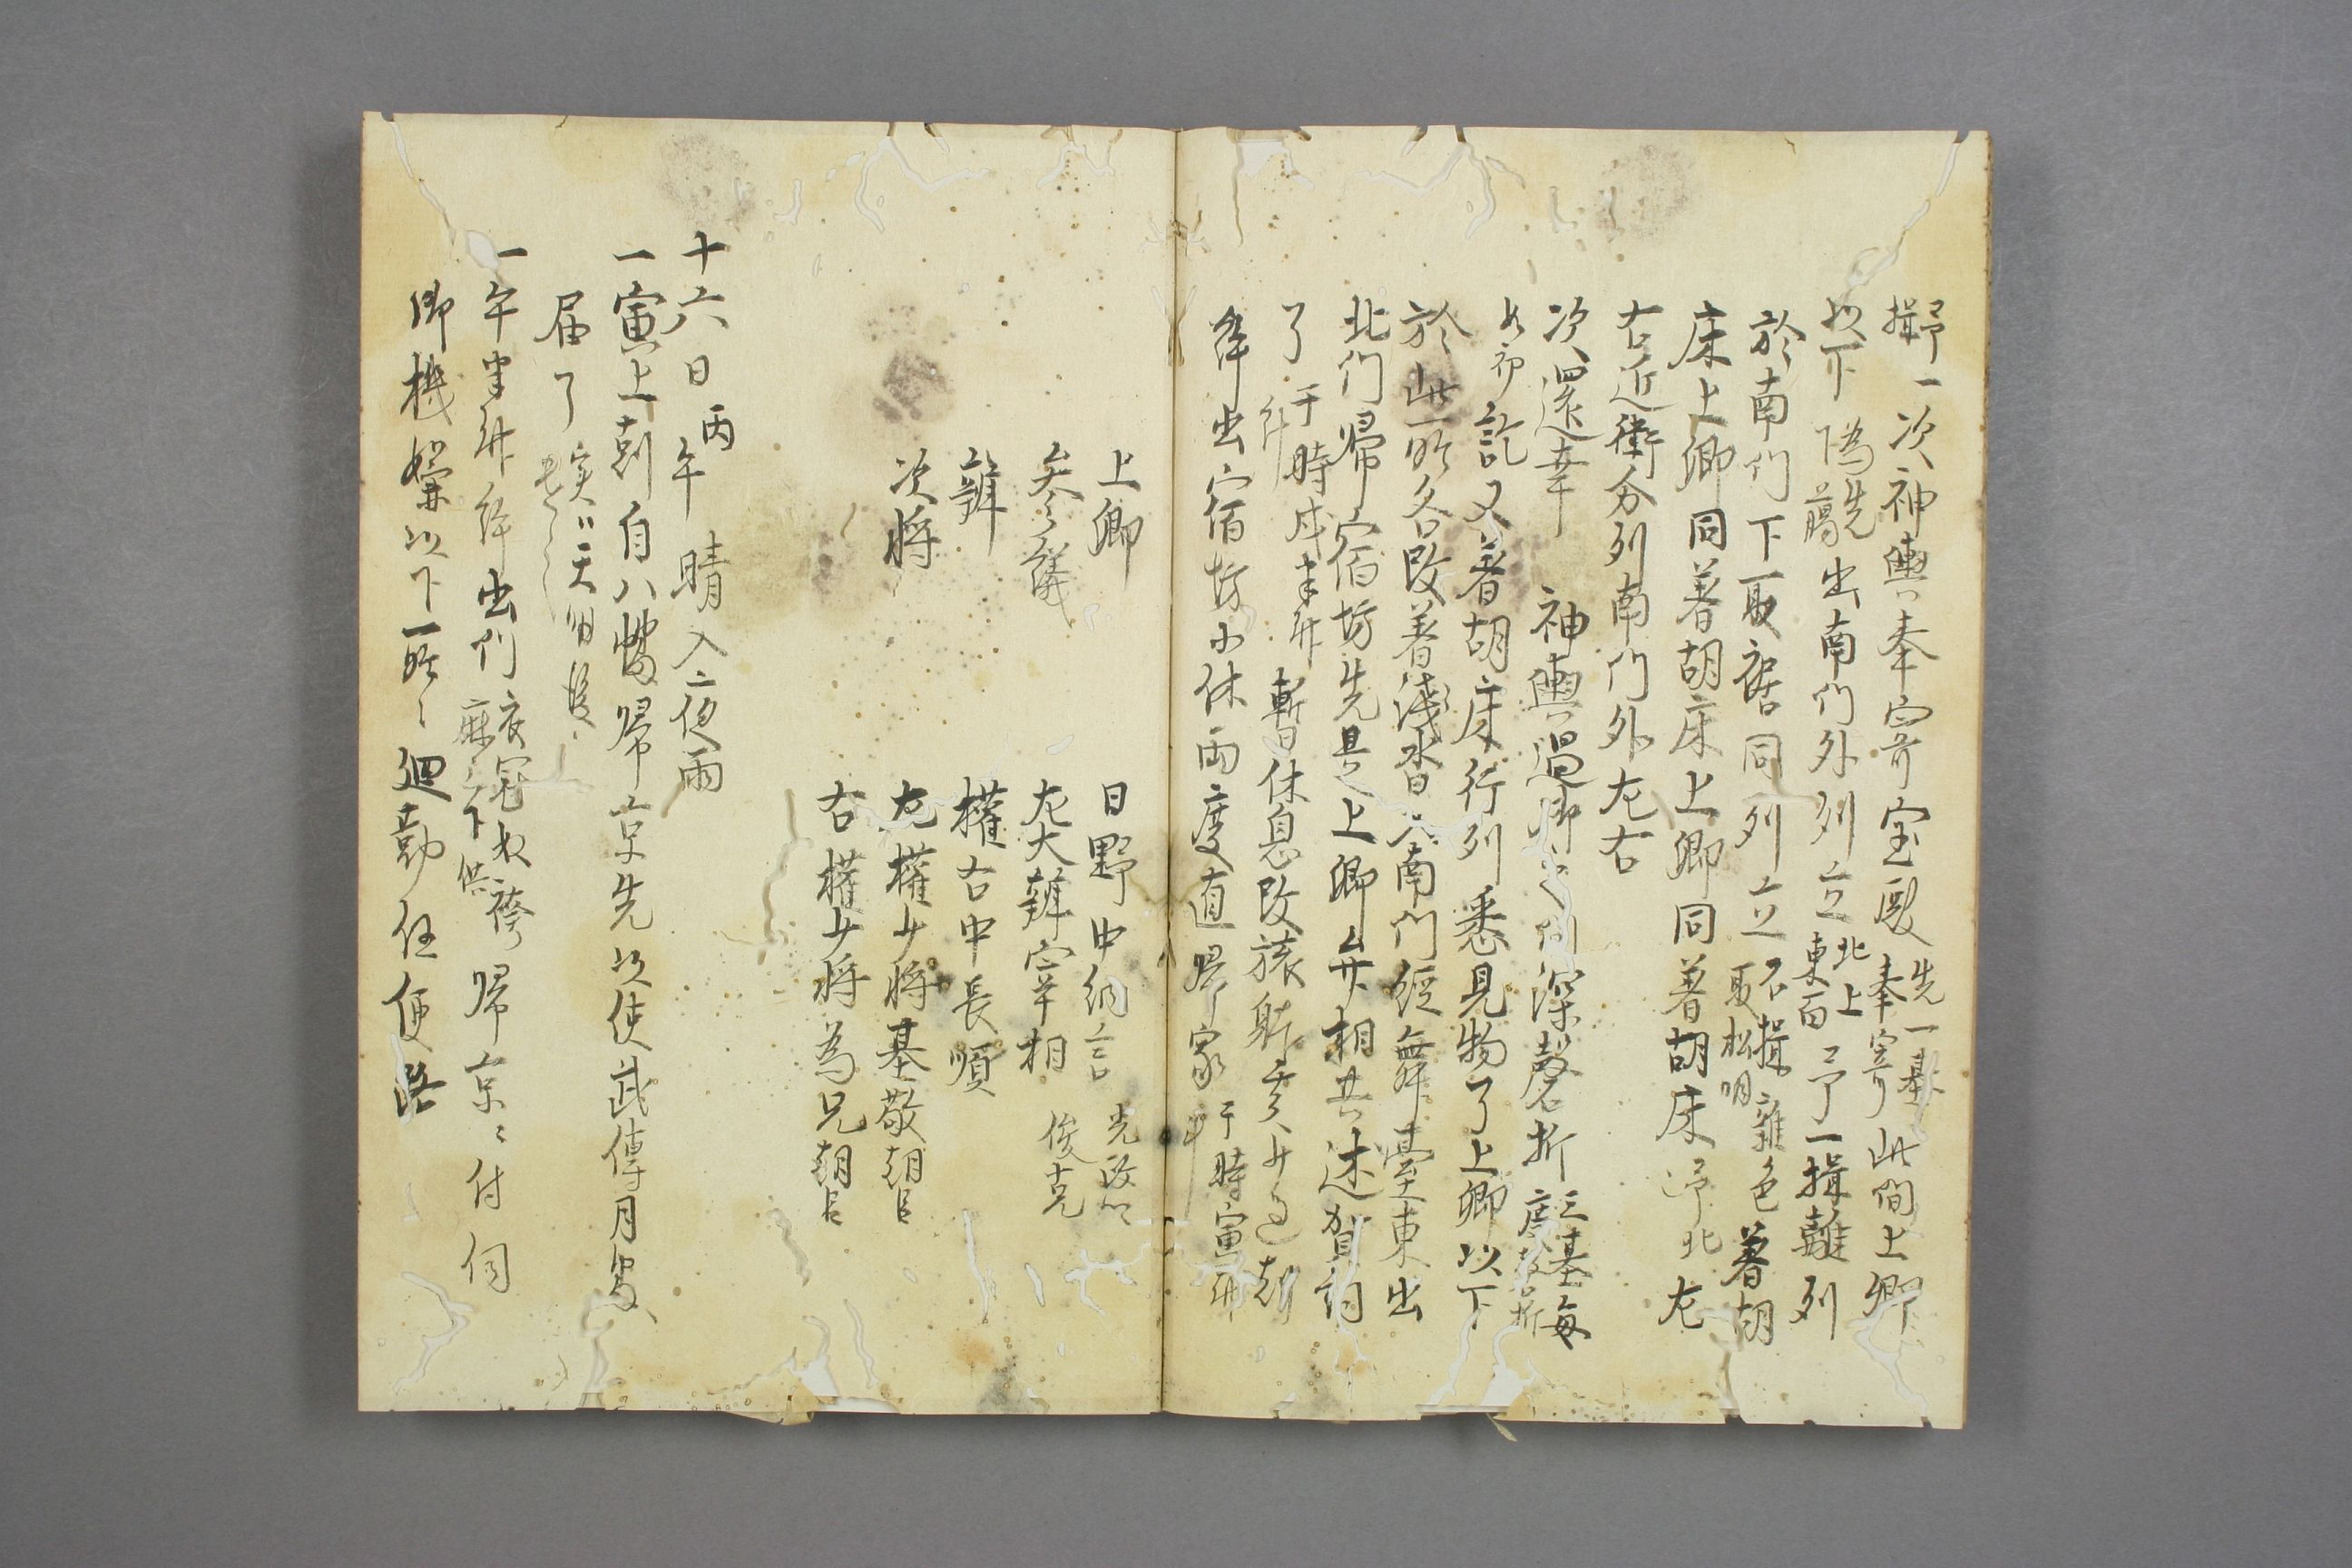 揖予一次神輿奉寄宝殿先一基奉寄此間上卿
以下為先下﨟出南門外列立北上東面予一揖離列
於南門下取裾同列立不揖雑色取松明著胡
床上卿同著胡床上卿同著胡床予北左
右近衛分列南門外左右
次還幸 神輿過御之間深磬折三基毎度磬折
如初訖又著胡床行列悉見物了上卿以下
於此所各改著浅沓入南門経舞臺東出
北門帰宿坊先是上卿弁相共述賀詞
了于時戌半許暫休息改旅躰 刻
出宿坊小休両度直帰家于時寅許
上卿 日野中納言
参議 左大辨宰相俊克
辨 権右中長順
次将 左権少将基敬朝臣
右権少将為兄朝臣
十六日丙午晴入夜雨
一寅上刻自八幡帰京先以使武傳月
届了実ハ天明後
一午半許出門衣冠奴袴下供帰京ニ付伺
御機嫌以下所々廻勤任便路